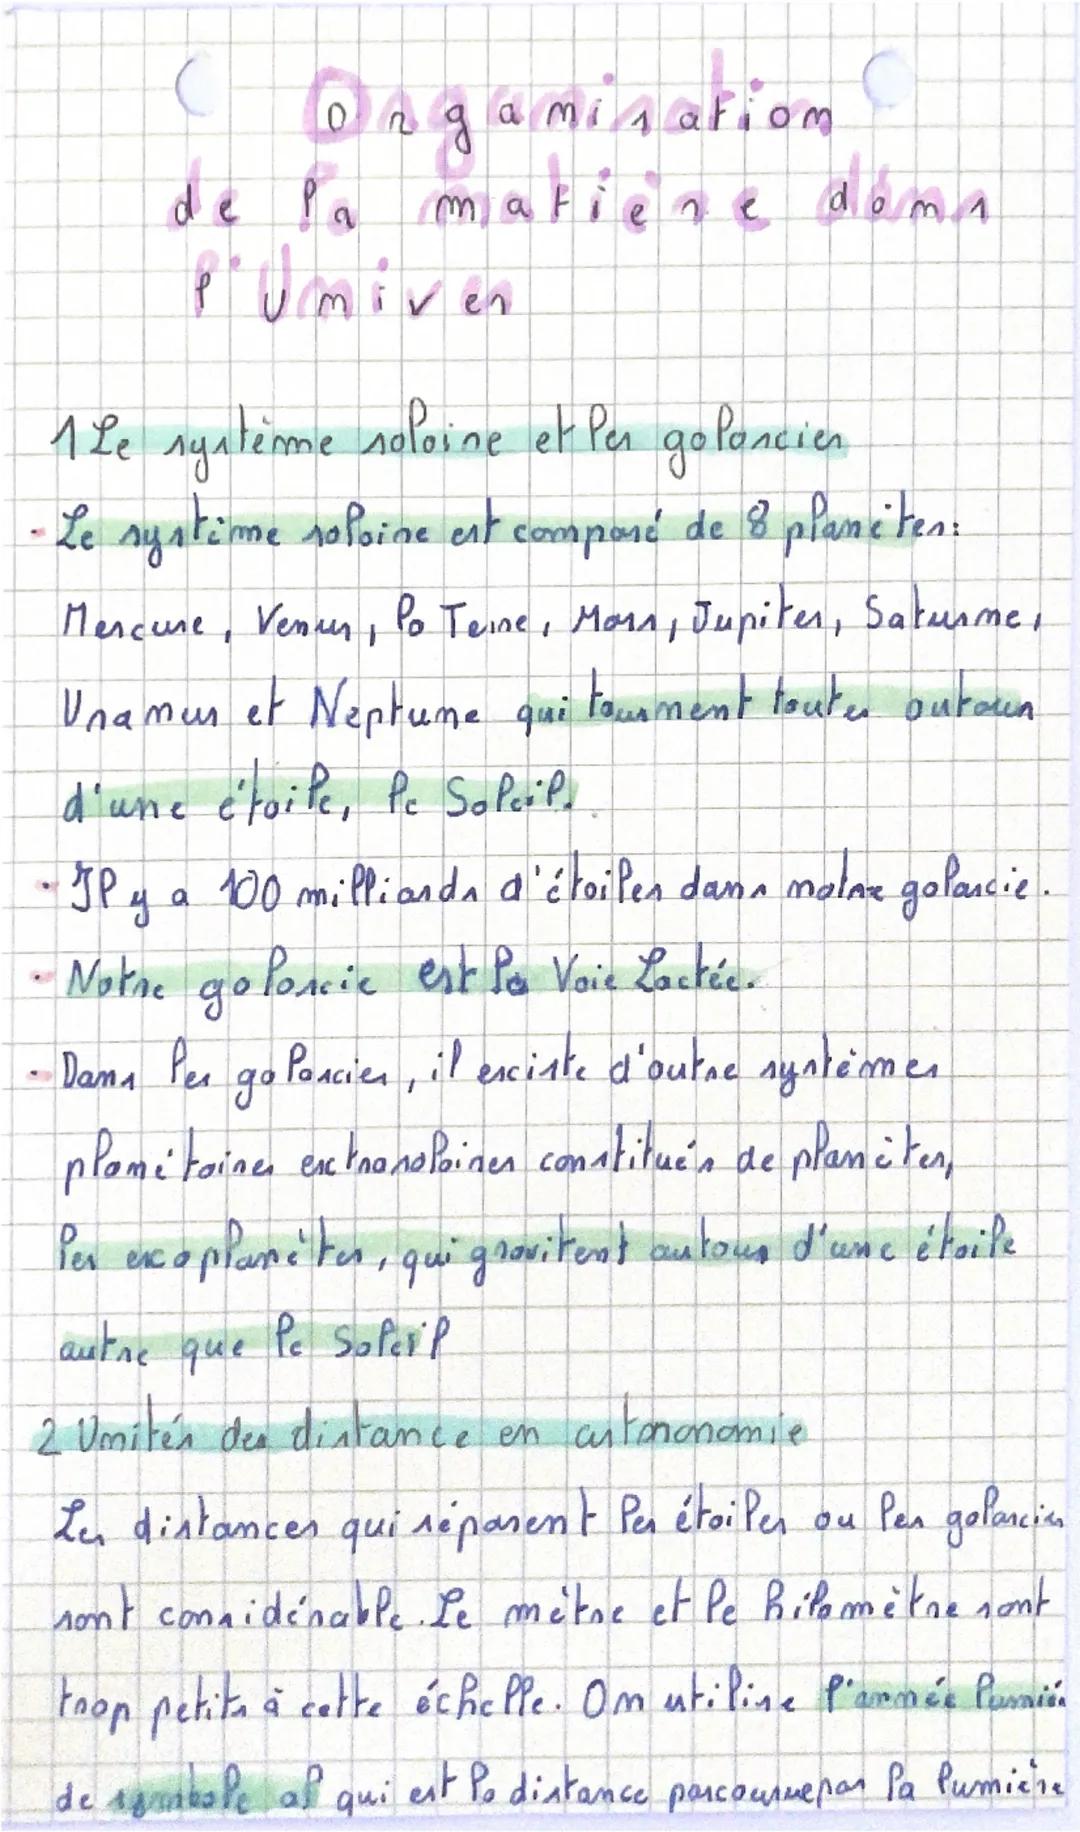 Organisation
de la matière dans
l'Univer
1 Le système solaire et les galaxies
- Le système solaire est composé de 8 planètes:
Mercure, Venus, la Terre, Mars, Jupiter, Saturne,
Uranus et Neptune qui tournent toutes autour
d'une étoile, le Soleil.
- Il y a 100 milliards d'étoiles dans notre galaxie.
- Notre galaxie est la Voie Lactée.
- Dans les galaxies, il existe d'autre systèmes
planétaires extrasolaires constitués de planètes,
les exoplanètes, qui gravitent autour d'une étoile
autre que le Soleil
2 Unités des distance en astronomie
Les distances qui séparent les étoiles ou les galaxies
sont considérable. Le mètre et le kilomètre sont
trop petits à cette échelle. On utilise l'année lumière
de symbole al qui est la distance parcourue par la lumière